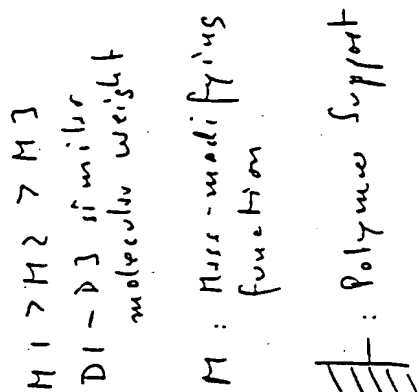 M1 > M2 > M3
D1 - D3 similar
molecular weight
M : Mass-modifying
function
: Polymer Support